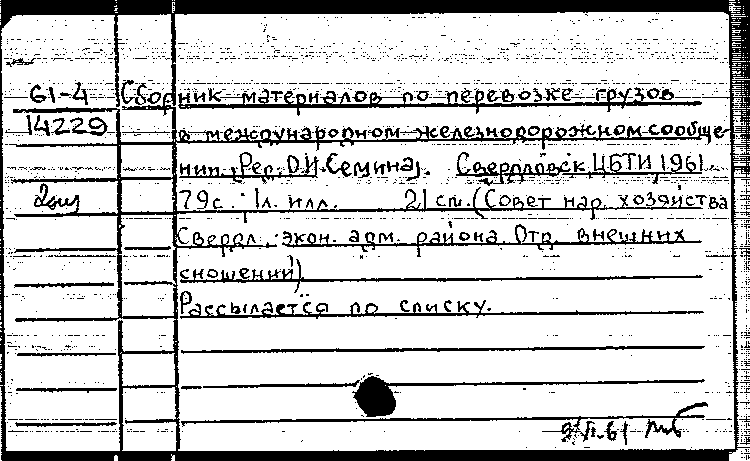 61-4
14229
2 экз
Сборник материалов по перевозке грузов
в международном железнодорожном сообще-
нии. [Ред. О.И. Семина]. Свердловск, ЦБТИ, 1961.
79 с.; 1 л. илл. 21 см. (Совет нар. хозяйства
Свердл. экон. адм. района. Отд. внешних
сношений)
Рассылается по списку.